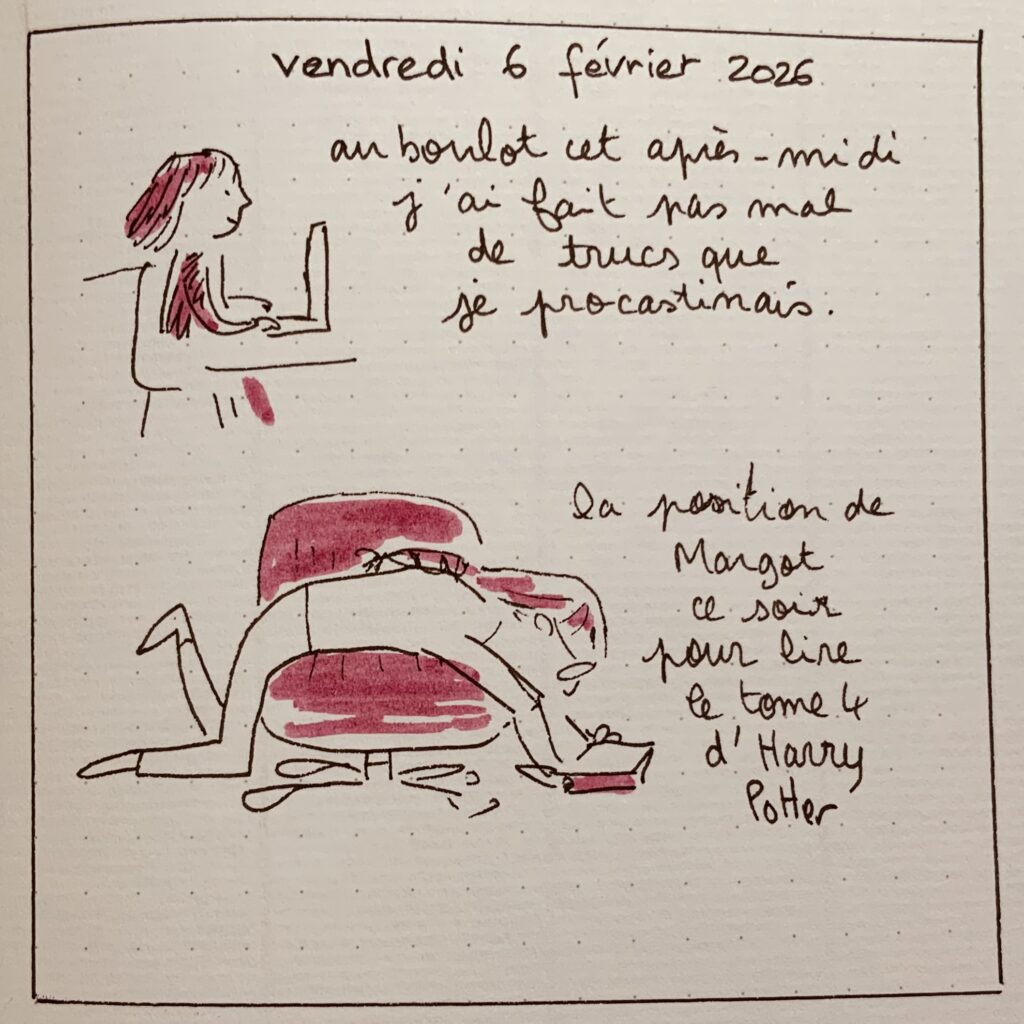 vendredi 6 février 2026
au boulot cet après-midi
j'ai fait pas mal
de trucs que
je procastinais.
la position de
Margot
ce soir
pour lire
le tome 4
d'Harry
Potter